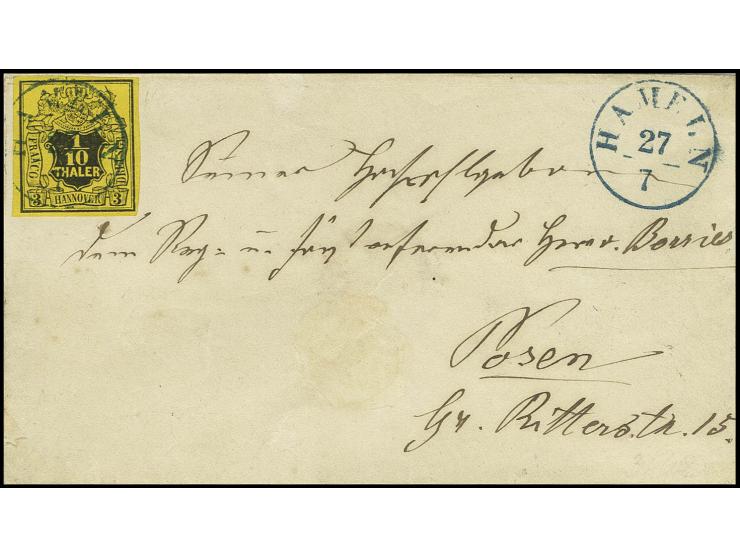 FRANCO
1/10
THALER
3 HANNOVER 3
HAMELN
27
7
Seiner Hochwohlgeboren
dem Reg = u. Forstreferendar Herrn v. Borries
Posen
Gr. Ritterstr. 15.